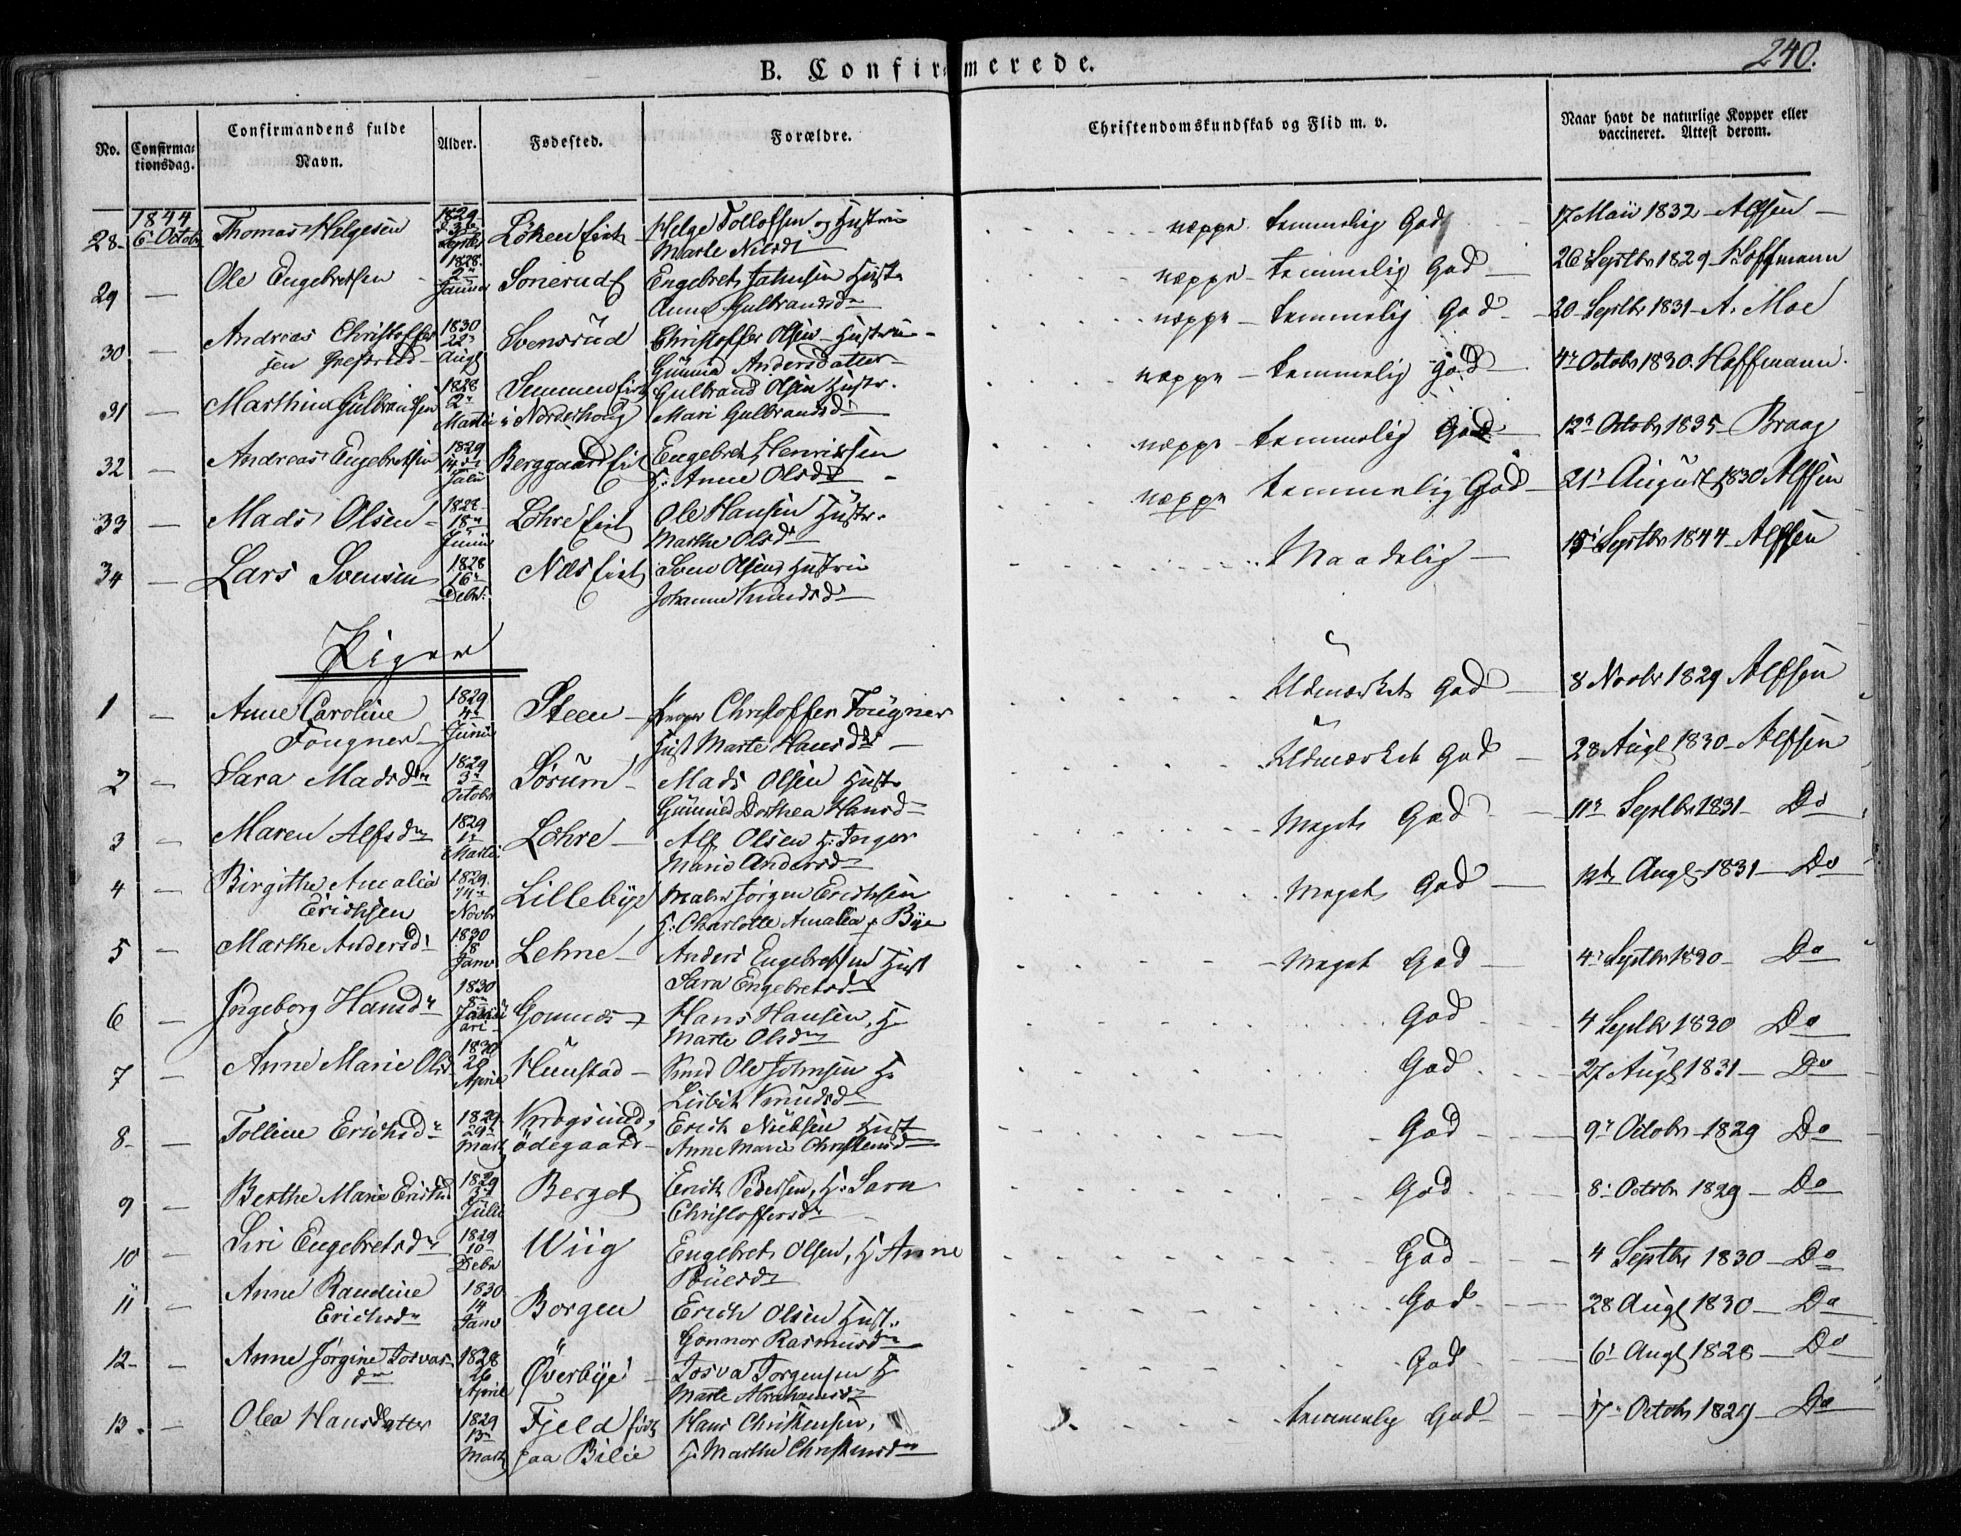 240.
B. Confirmerede.
No. Confirma-tionsdag. Confirmandens fulde Navn. Alder. Fødested. Forældre. Christendomskundskab og Flid m. v. Naar havt de naturlige Kopper eller vaccineret. Attest derom.
1844
28- 6te Octobr Thomas Helgesen 1829 Septbr Løken Eiet Helge Tollofsen og Hustru Marte Nilsd næppe temmelig God 17 Maii 1832 - Alfsen
29 — Ole Engebretsen 1828 2 Januar Sonerud Engebret Jahnsen Hustr Anne Gulbrandsdr næppe - temmelig God 26 Septbr 1829 - Hoffmann
30 — Andreas Christoffersen 1830 22 Augt Svensrud Christoffer Olsen - Hustrue Gunnild Andersdatter næppe - temmelig God 20 Septbr 1831 - A. Moe
31 — Marthin Gulbrandsen 1828 2 Martii Semmen Eiet i Norderhoug Gulbrand Olsen Hustr. Mari Gulbrandsd næppe - temmelig God 4 Octobr 1830. Hoffmann.
32 — Andreas Engebretsen 1829 14 Julii Berggaard Eiet Engebret Henriksen H: Anne Olsd næppe - temmelig God 12 Octobr 1835 - Braag
33 — Mads Olsen 1828 18 Junii Løhre Eiet Ole Hansen Hustr. Marthe Olsdr næppe temmelig God 21 August 1830 Alfsen
34 — Lars Svensen 1828 16 Debr: Næs Eiet Sven Olsens Hustru Johanne Knudsd Maadelig 15 Septbr 1844 - Alfsen
Piger
1 — Anne Caroline Fougner 1829 4 Junii Steen Christoffer Fougner Hust Marte Hansdr Udmærket God 8 Novbr 1829 Alfsen
2 — Sara Madsdr 1829 3 Octobr Sørum Mads Olsen Hustr Gunnild Dorthea Hansd Udmærket God 28 Augt 1830 - Alfsen
3 — Maren Alfsdr 1829 1 Martii Løhre Alf Olsen H: Inger Marie Andersd Meget God 11 Septbr 1831 - Do
4 — Birgithe Amalia Erichsen 1829. Novbr Lillebye Jørgen Erichsen H: Charlotte Amalia f Bye Meget God Augt 1831 - Do
5 — Marthe Andersd 1830 18 Janv Lehne Anders Engebretsen Hust Sara Engebretsd Meget God 4 Septbr 1830 - Do
6 — Ingeborg Hansdr 1830 8 Januari Gomnæs Hans Hansen, H Marte Olsdr God 4 Septbr 1830 Do
7 — Anne Marie Olsd 1830 28 April Hunstad Ole Johnsen H Lisbet Knudsd God 27 Augt 1831 - Do
8- — Tolline Erichsdr 1829 29 Marti Krogsund, ødegaard Erich Nielsen Hust Anne Marie Christensd God 9 Octobr 1829 Do
9 — Berthe Marie Erichsd 1829 3 Julii Berget Erich Pedersen, H: Sara Christoffersdr God 8 Octobr 1829 - Do
10 — Siri Engebretsdr 1829 10 Debr Wiig Engebret Olsen, H Anne Povelsd God 4 Septbr 1830 - Do
11 — Anne Randine Erichsdr 1830 14 Janv Borgen Erich Olsen Hust. Gonnor Rasmusdr God 28 Augt 1830 - Do
12- — Anne Jørgine Josvasdr 1828 26 April Øverbye Josva Jørgensen H Marte Abrahamsd God 6 Augt 1828 - Do
13. — Olea Hansdatter 1829 13 Marti Fjeld født paa Bilie Hans Christensen, H: Marthe Christensdr temmelig God 17 Octobr 1829 - Do